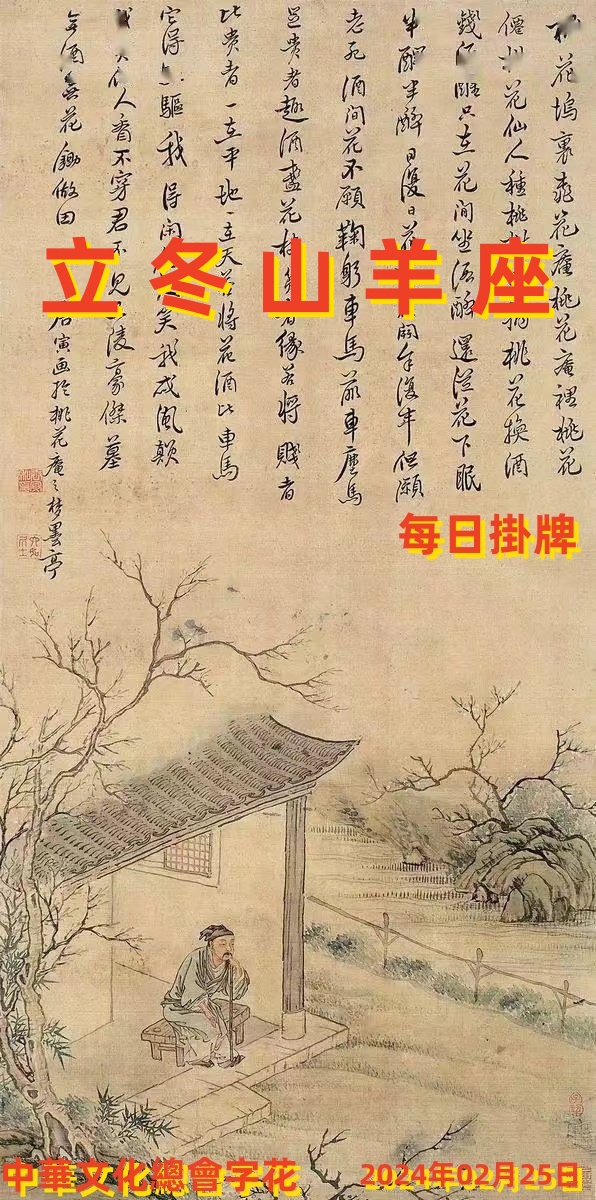 花塢裏桃花庵桃花庵裡桃花
僊花仙人種桃摘桃花換酒
錢酒醒只在花間坐酒醉還從花下眠
半醒半醉日復日花開年復年但願
老死酒間花不願鞠躬車馬前車塵馬
足貴者趣酒盞花枝貧者緣若將賤者
比貴者一在平地一在天若將花酒比車馬
它得驅我得閑笑我忒風顛
人看不穿君不見陵豪傑墓
無酒無花鋤做田
唐寅画於桃花庵之夢墨亭
立冬山羊座
每日掛牌
中華文化總會字花
2024年02月25日